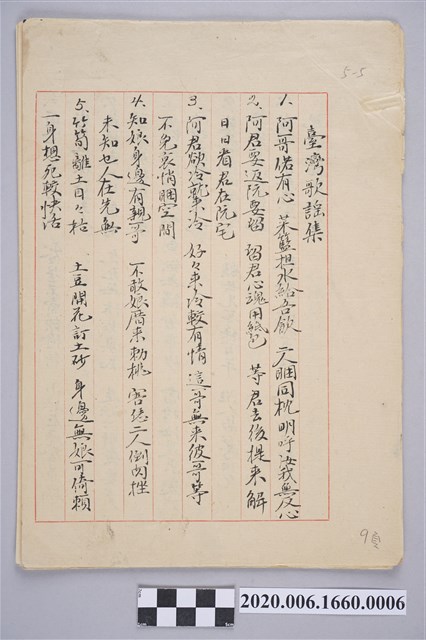 5-5
臺灣歌謠集
1. 阿哥偌有心 菜籃担水給吾飲 二人睏同枕 明呼汝我無反心
2. 阿君要返阮要留 留君心魂用紙包 等君去後提来解
日日看君在阮宅
3. 阿君欲冷就来冷 好々来冷較有情 這哥無来彼哥等
不免哀悄睏空間
4. 知娘身邊有親哥 不敢娘厝来勅桃 害恁二人倒閃挫
未知也人在先無
5. 竹筍離土日々枯 土豆開花訂土砂 身邊無娘可倚賴
一身想死較快活
9頁
2020.006.1660.0006